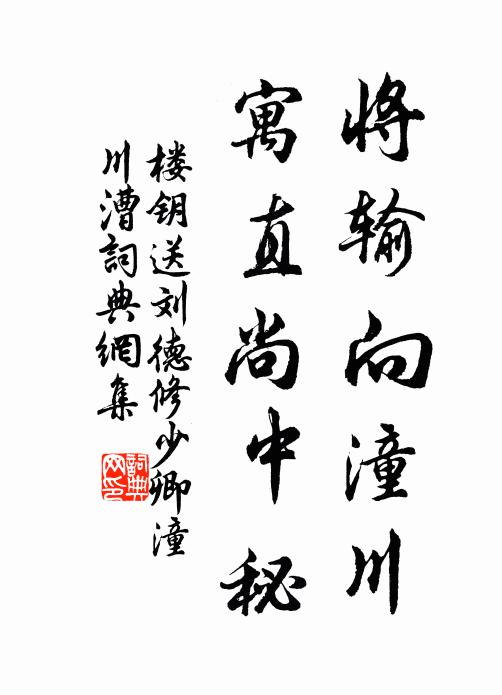 将输向潼川
寓直尚中秘
楼钥送刘德修少卿潼
川漕詞典網集
詞典网印